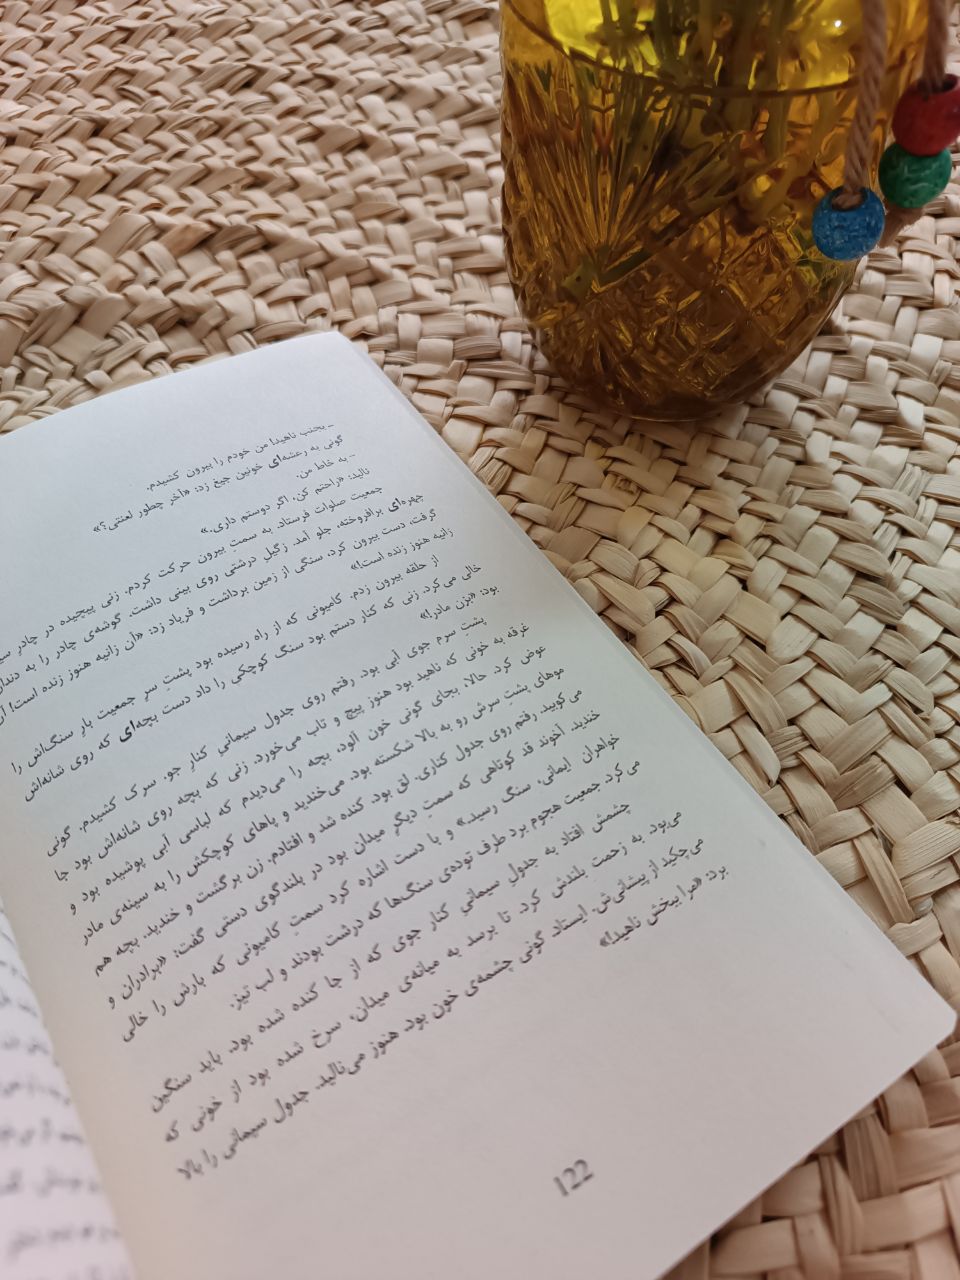 ـ بجنب ناهید! من خودم را بیرون کشیدم.
گونی به رعشه‌ای خونین جیغ زد: «آخر چطور لعنتی؟»
ـ به خاط من.
نالید: «راحتم کن. اگر دوستم داری.»
جمعیت صلوات فرستاد. به سمتِ بیرون حرکت کردم. زنی پیچیده در چادر
چهره‌ای برافروخته، جلو آمد. زگیلِ درشتی روی بینی داشت. گوشه‌ی چادر را به
گرفت، دست بیرون کرد، سنگی از زمین برداشت و فریاد زد: «آن زانیه هنوز زنده است!
زانیه هنوز زنده است!»
از حلقه بیرون زدم. کامیونی که از راه رسیده بود پشتِ سرِ جمعیت بارِ سنگ‌اش را
خالی می‌کرد. زنی که کنار دستم بود سنگ کوچکی را داد دست بچه‌ای که روی شانه‌اش
بود: «بزن مادر!»
پشتِ سرم جوی آبی بود. رفتم روی جدول سیمانیِ کنارِ جو. سرک کشیدم. گونی
غرقه به خونی که ناهید بود هنوز پیچ و تاب می‌خورد. زنی که بچه روی شانه‌اش بود جا
عوض کرد. حالا، بجای گونی خون آلود، بچه را می‌دیدم که لباسی آبی پوشیده بود و
موهای پشتِ سرش رو به بالا شکسته بود. می‌خندید و پاهای کوچکش را به سینه‌ی مادر
می کوبید. رفتم روی جدول کناری. لق بود. کنده شد و افتادم. زن برگشت و خندید. بچه هم
خندید. آخوند قد کوتاهی که سمتِ دیگرِ میدان بود در بلندگوی دستی گفت: «برادران و
خواهران ایمانی. سنگ رسید.» و با دست اشاره کرد سمتِ کامیونی که بارش را خالی
می‌کرد. جمعیت هجوم برد طرف توده‌ی سنگ‌ها که درشت بودند و لب تیز.
چشمش افتاد به جدولِ سیمانیِ کنار جوی که از جا کنده شده بود. باید سنگین
می‌بود. به زحمت بلندش کرد. تا برسد به میانه‌ی میدان، سرخ شده بود از خونی که
می‌چکید از پیشانی‌ش. ایستاد. گونی چشمه‌ی خون بود. هنوز می‌نالید. جدول سیمانی را بالا
برد: «مرا ببخش ناهید!»
122